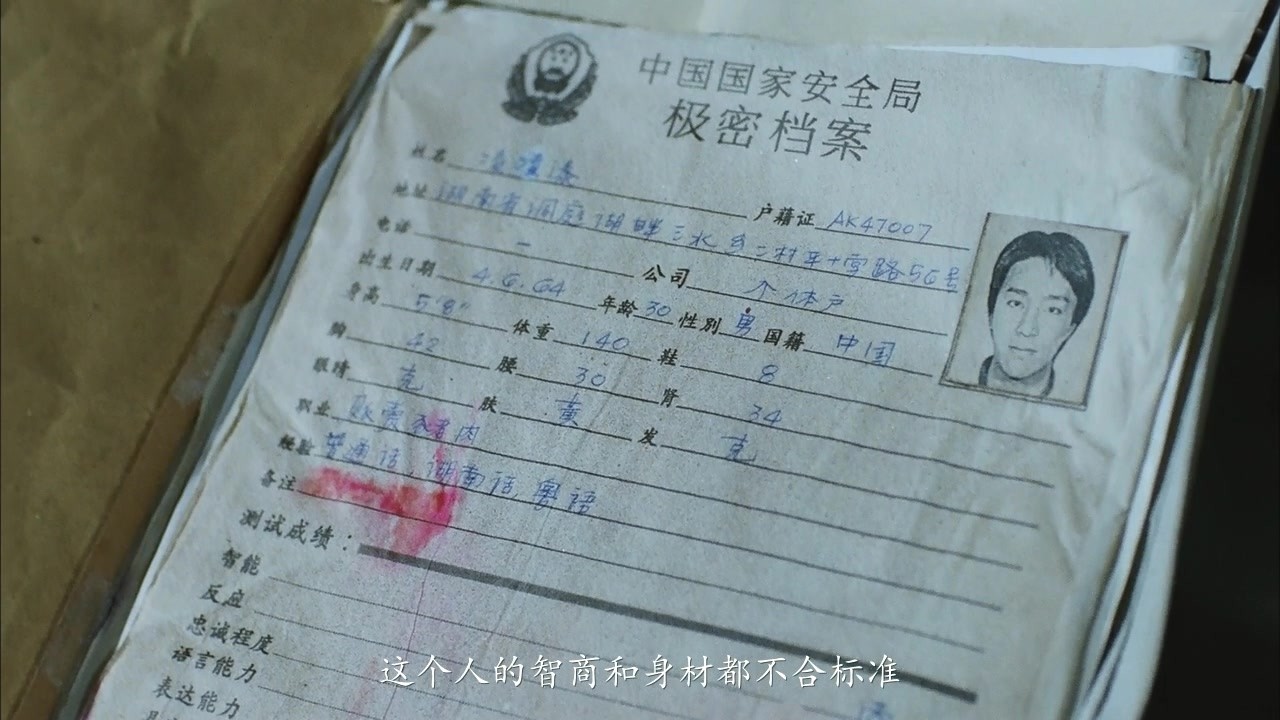 中国国家安全局
极密档案
姓名 凌凌漆
户藉证 AK47007
地址 湖南省洞庭湖畔三水乡二村平十字路56号
电话 — 公司 个体户
出生日期 4.6.64 年龄 30 性别 男 国籍 中国
身高 5'8" 体重 140 鞋 8
胸 42 腰 30 肾 34
眼睛 克 肤 黄 发 克
职业 贩卖 肉
经验 普通话,湖南话 粤语
备注
测试成绩:
智能
反应
忠诚程度
语言能力
表达能力
这个人的智商和身材都不合标准